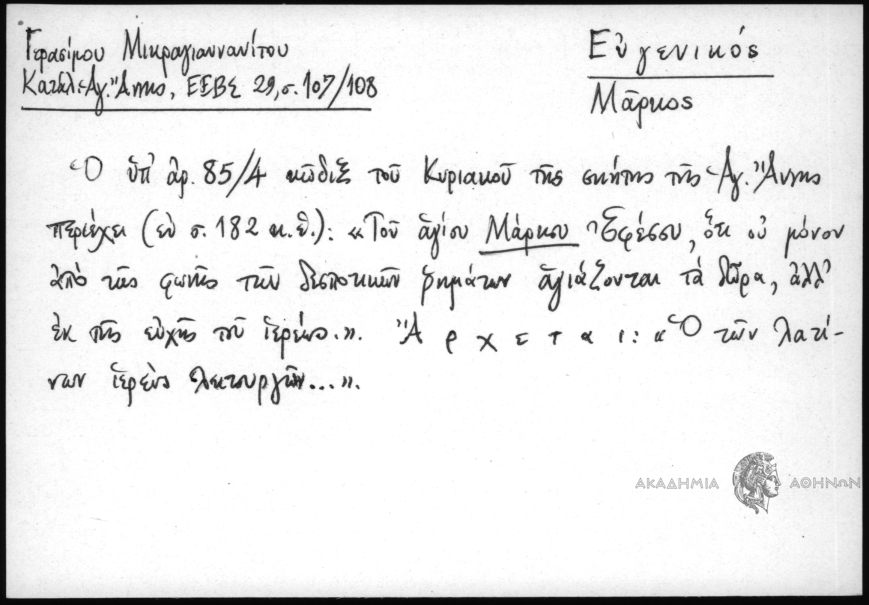 Γερασίμου Μικραγιαννανίτου
Κατάλ. Ἁγ. Ἄννης, ΕΕΒΣ 29, σ. 107/108
Εὐγενικός
Μᾶρκος
Ὁ ὑπ' ἀρ. 85/4 κῶδιξ τοῦ Κυριακοῦ τῆς σκήτης τῆς Ἁγ. Ἄννης
περιέχει (ἐν σ. 182 κ.ἑ.): «Τοῦ ἁγίου Μάρκου Ἐφέσου, ὅτι οὐ μόνον
ἀπὸ τῆς φωνῆς τῶν δεσποτικῶν ῥημάτων ἁγιάζονται τὰ δῶρα, ἀλλ'
ἐκ τῆς εὐχῆς τοῦ ἱερέως.». Ἄρχεται: «Ὁ τῶν λατί-
νων ἱερεὺς λειτουργῶν...».
ΑΚΑΔΗΜΙΑ ΑΘΗΝΩΝ